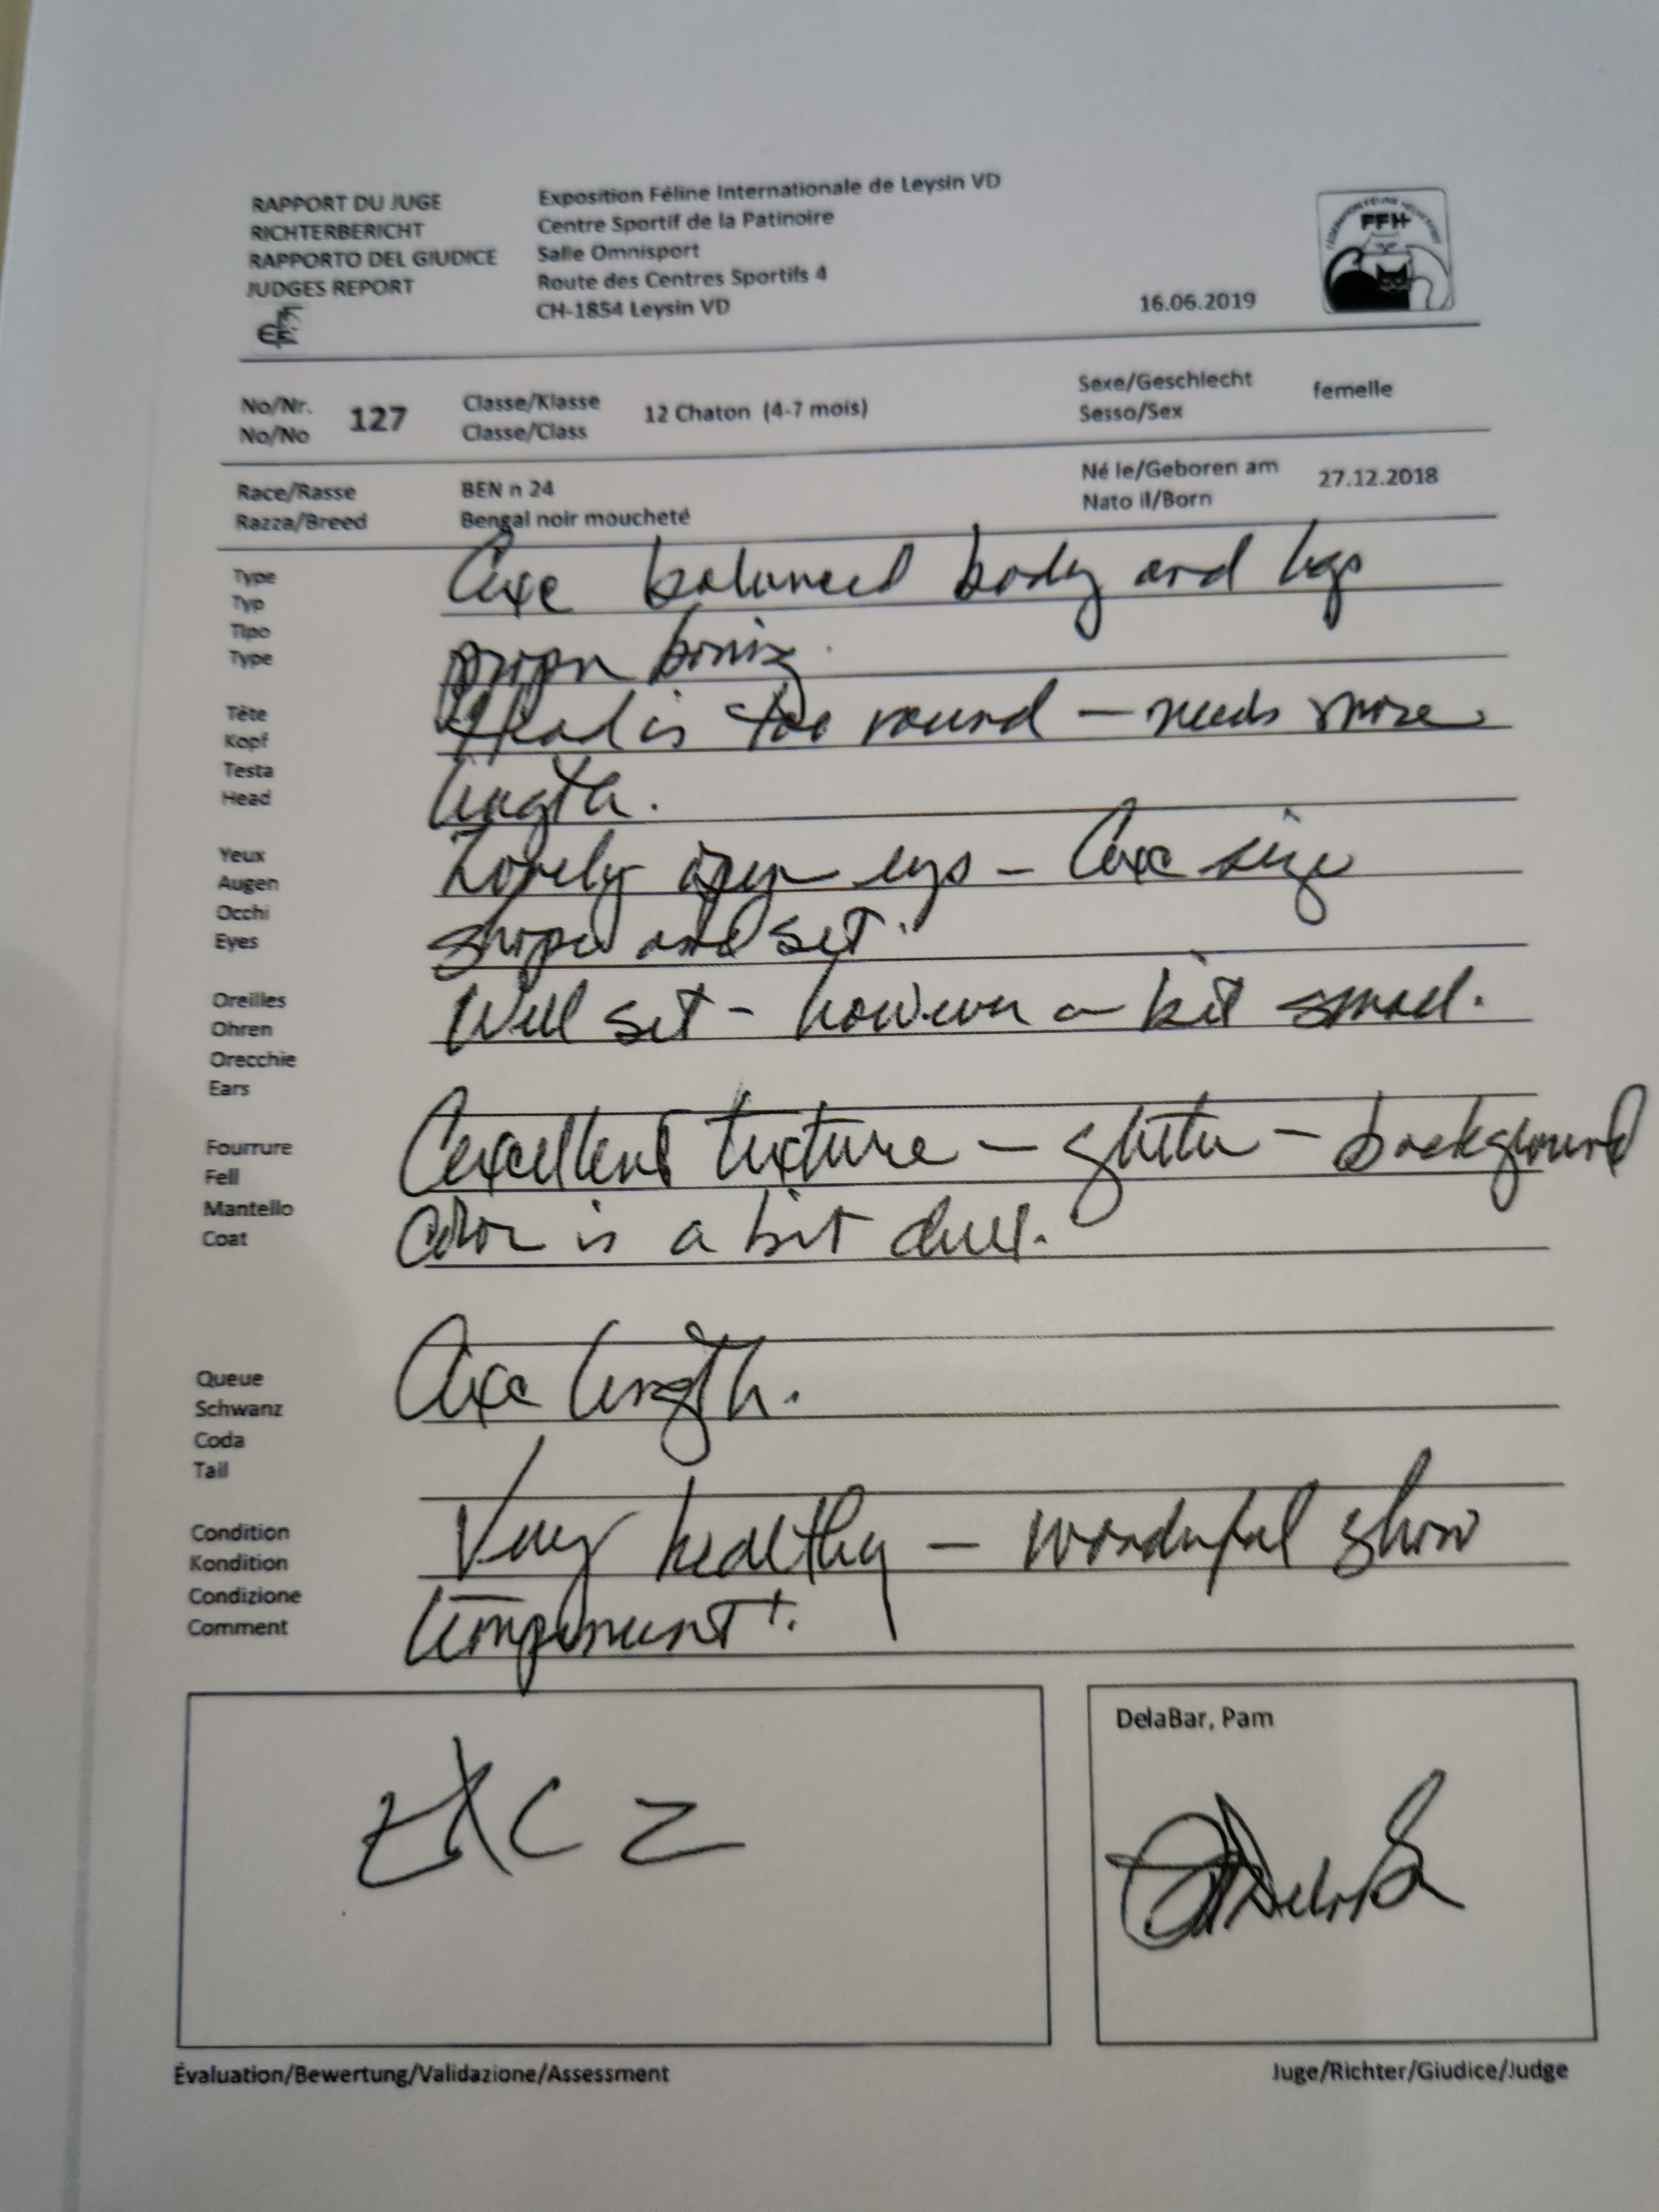 RAPPORT DU JUGE
RICHTERBERICHT
RAPPORTO DEL GIUDICE
JUDGES REPORT
Exposition Féline Internationale de Leysin VD
Centre Sportif de la Patinoire
Salle Omnisport
Route des Centres Sportifs 4
CH-1854 Leysin VD
16.06.2019
FFH
No/Nr.
No/No
127
Classe/Klasse
Classe/Class
12 Chaton (4-7 mois)
Sexe/Geschlecht
Sesso/Sex
femelle
Race/Rasse
Razza/Breed
BEN n 24
Bengal noir moucheté
Né le/Geboren am
Nato il/Born
27.12.2018
Type
Typ
Tipo
Type
balanced body and legs
boning
Tête
Kopf
Testa
Head
Head is too round - needs more
length.
Yeux
Augen
Occhi
Eyes
Lovely open eyes - size
shape and set.
Oreilles
Ohren
Orecchie
Ears
Well set - however a bit small.
Fourrure
Fell
Mantello
Coat
excellent texture - glitter - background
color is a bit dull.
Queue
Schwanz
Coda
Tail
length.
Condition
Kondition
Condizione
Comment
Very healthy - wonderful show
temperament.
EXC 2
DelaBar, Pam
Évaluation/Bewertung/Validazione/Assessment
Juge/Richter/Giudice/Judge